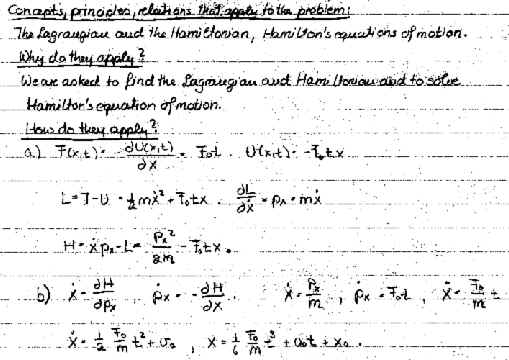 Concepts, principles, relations that apply to the problem:
The Lagrangian and the Hamiltonian, Hamilton's equations of motion.
Why do they apply?
We are asked to find the Lagrangian and Hamiltonian and to solve
Hamilton's equation of motion.
How do they apply?
a.) F(x,t) = -∂U(x,t)/∂x = F₀t. U(x,t) = -F₀tx
L = T-U = ½mẋ² + F₀tx. ∂L/∂ẋ = pₓ = mẋ
H = ẋpₓ - L = pₓ²/2m - F₀tx.
b) ẋ = ∂H/∂pₓ ṗₓ = -∂H/∂x. ẋ = pₓ/m, ṗₓ = F₀t, ẍ = F₀/m t
ẋ = ½ F₀/m t² + v₀, x = 1/6 F₀/m t³ + v₀t + x₀.